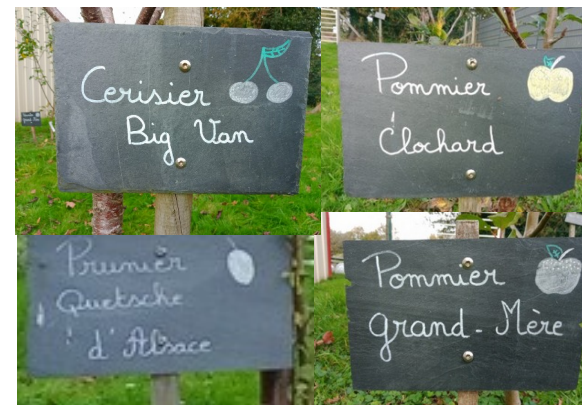 Cerisier
Big Van
Pommier
Clochard
Prunier
Quetsche
d'Alsace
Pommier
grand-Mère